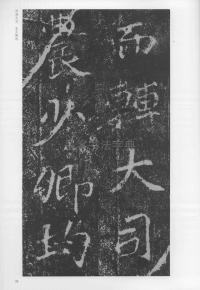 而轉大司
農少卿均